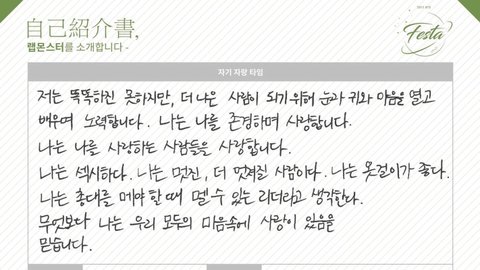 自己紹介書,
랩몬스터를 소개합니다 -
2017 BTS
Festa
자기 자랑 타임
저는 똑똑하진 못하지만, 더 나은 사람이 되기 위해 눈과 귀와 마음을 열고
배우며 노력합니다. 나는 나를 존경하며 사랑합니다.
나는 나를 사랑하는 사람들을 사랑합니다.
나는 섹시하다. 나는 멋진, 더 멋져질 사람이다. 나는 옷걸이가 좋다.
나는 총대를 메야 할 때 멜 수 있는 리더라고 생각한다.
무엇보다 나는 우리 모두의 마음속에 사랑이 있음을
믿습니다.